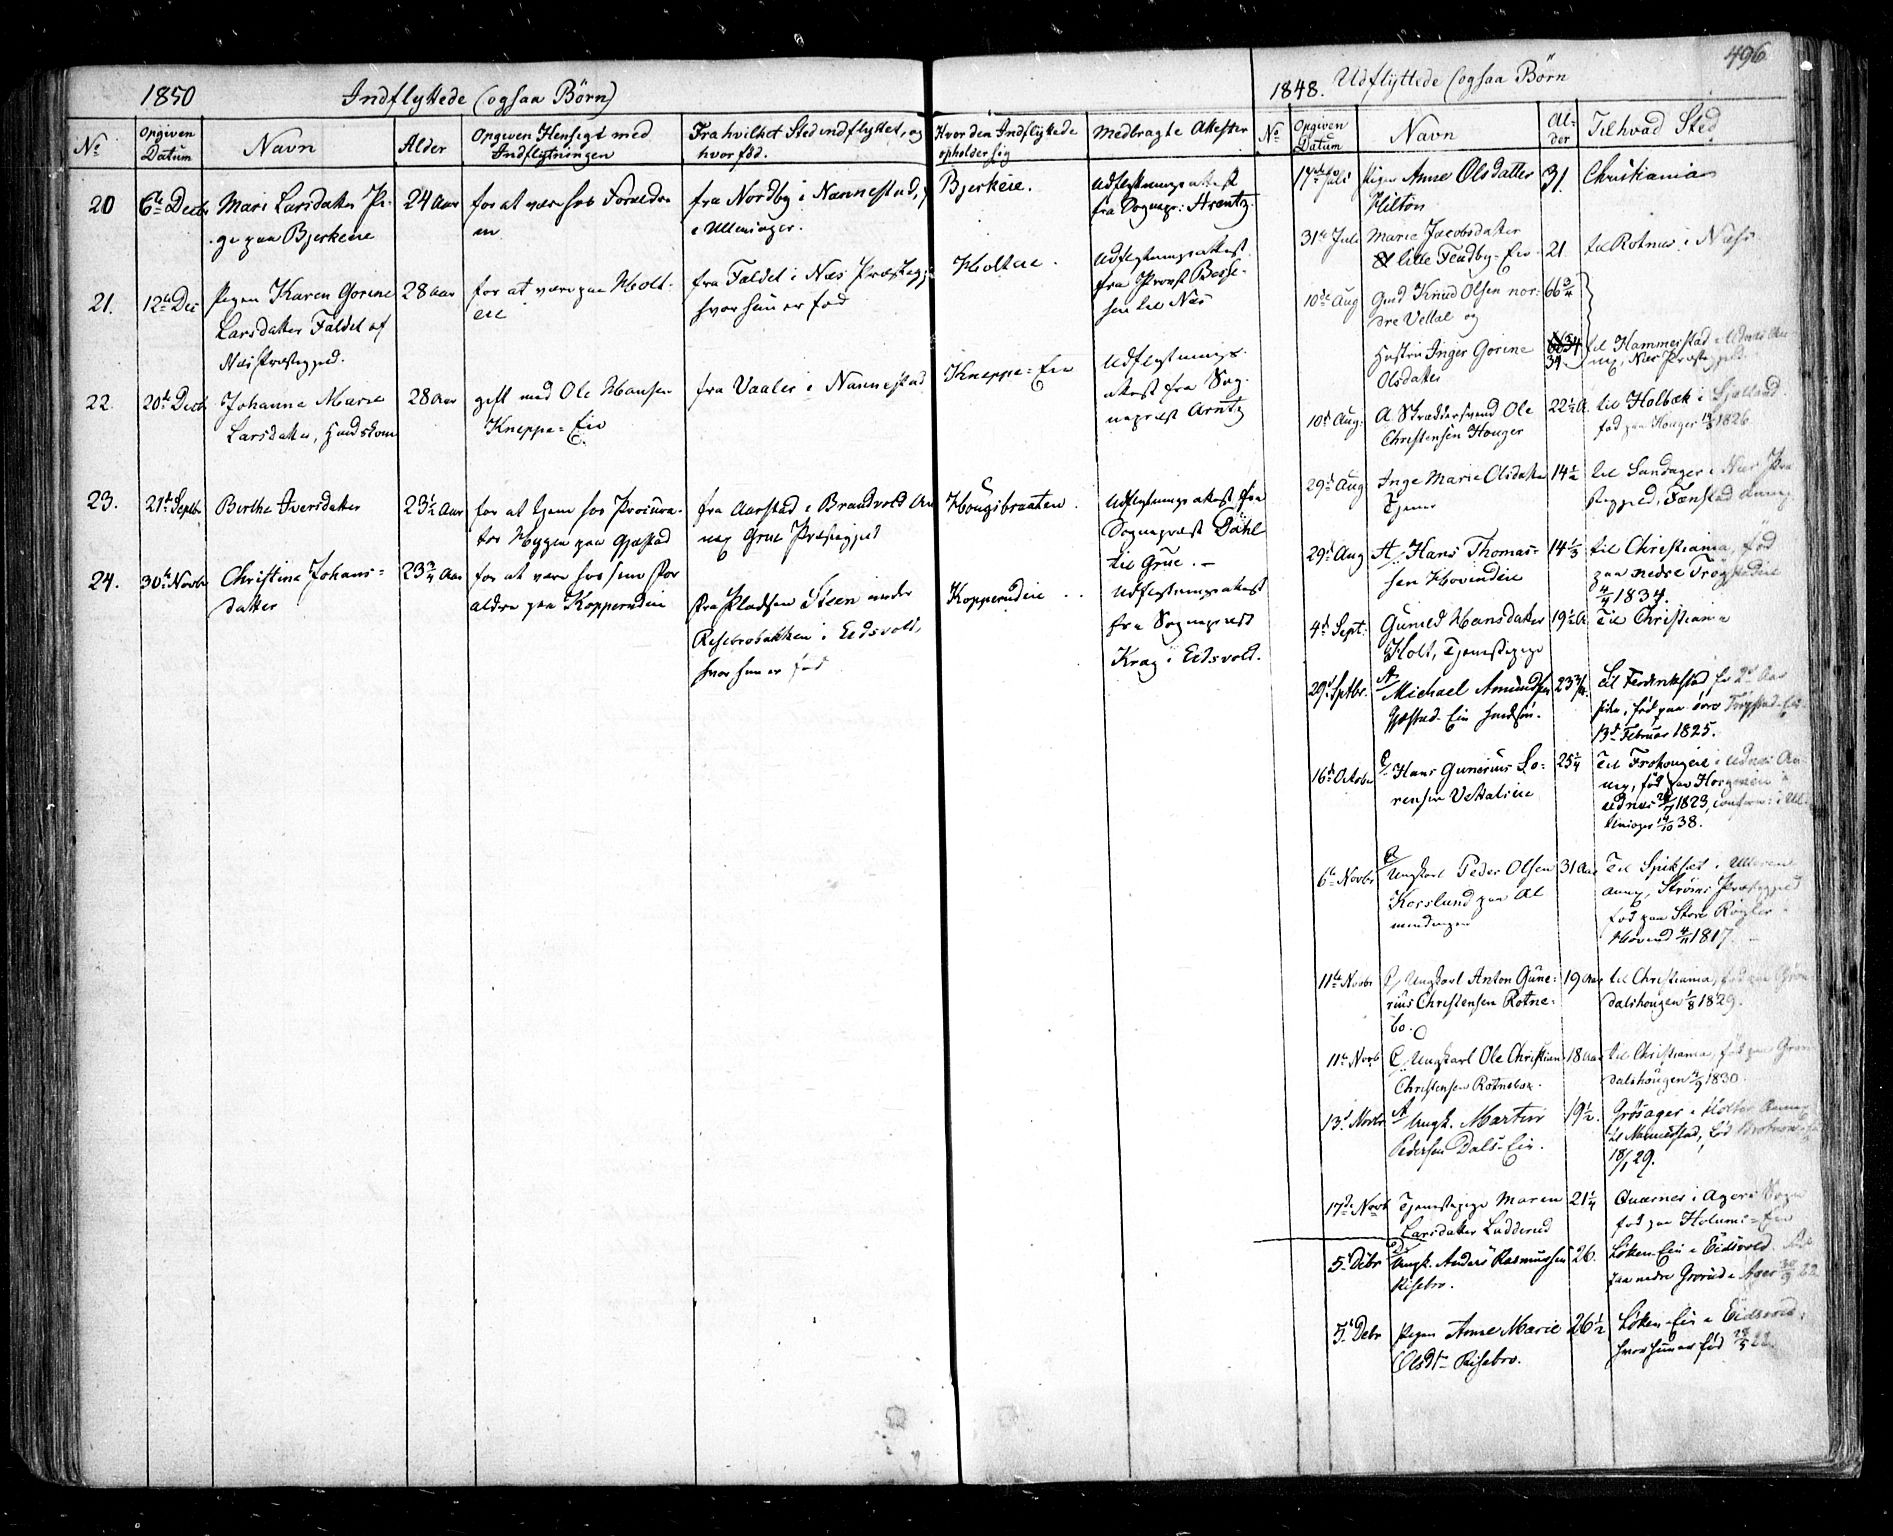 1850
Indflyttede (ogsaa Börn)
No
Opgiven Datum
Navn
Alder
Opgiven Hensigt med Indflytningen
Fra hvilket Sted indflyttet, og hvor föd.
Hvor den Indflyttede opholder sig
Medbragte Attester
20
6te Decbr
Mari Larsdatter Pi-
ge paa Bjerkeeie
24 Aar
for at være hos Forældre
ne
fra Nordby i Nannestad,
i Ullensager.
Bjerkeie.
Udflytningsattest
fra Sognepr: Arentz.
21.
12te Dec
Pigen Karen Gorine
Larsdatter Faldet af
Næs Præstegjæld.
28 Aar
for at være paa Holt-
eie
fra Faldet i Næs Præstegj:
hvor hun er fød
Holteie.
Udflytningsattest
fra Provst
sen til Næs
22.
20de Decb
Johanna Marie
Larsdatter, Huusmkone
28 Aar
gift med Ole Hansen
Kneppe-Eie
fra Vaaler i Nannestad
Kneppe-Eie
Udflytnings-
attest fra Sog-
nepræst Arntz
23.
21de Septbr
Berthe Iversdatter
23½ Aar
for at tjene hos Procura-
tor Hygen paa Gjæstad
fra Aarstad i Brandvold An
nex Grue Præstegjeld
Hougsbraaten.
Udflytningsattest fra
Sognepræst Dahl
til Grue.
24.
30te Novbr
Christine Johans-
datter
23¾ Aar
for at være hos sine For
ældre paa Kopperudeie
fra Pladsen Steen under
Risebrobakken i Eidsvold,
hvor hun er fød
Kopperudeie
Udflytningsattest
fra Sognepræst
Krag i Eidsvold.
496
1848. Udflyttede (ogsaa Börn
No
Opgiven Datum
Navn
Al-der
Til hvad Sted
17de Juli
Pigen Anne Olsdatter
Hilton
31.
Christiania
31te Juli
Marie Jacobsdatter
lille Eie
21.
til Rotnes i Næs.
10de Aug
Gmd Knud Olsen nor-
dre Vettal og
66¾
Hustru Inger Gorine
Olsdatter
39.
til Hammerstad i Udnæs An
nex, Næs Præstegjeld
10de Aug:
A Skræddersvend Ole
Christensen Houger
22½ A.
til Holbæk i Sjælland.
fød paa Houger 1826
29de Aug
Inge Marie Olsdatter
Tjener
14½
til Sandager i Næs Præ
stegjeld, Fenstad Annex.
29de Aug
A/ Hans Thomas-
sen Hovindeie
14⅓
til Christiania, föd
paa nedre
4/4 1834.
4de Sept:
Gunild Hansdatter
Holt, Tjenestepige
19½ A
Til Christiania
29de Sptbr.
A/
Michael Amundsen
Gjæstad-Eie Huusön.
23
Til Frederikstad for 2de Aar
siden, föd paa Eie
13de Februar 1825.
16de Octobr
Hans Gunerius Lo-
rensen Vettaleie
25¼
Til Frohougeie i Udnæs An-
nex, föd paa i
Udnæs 1823, confirm: i Ul-
lensager 14/10 38.
6te Novbr
Ungkarl Peder Olsen
Korslund paa Al
mindingen
31 Aar
Til i Ullern
Annex, Ströms Præstegjeld
fød paa Store
Hovind 4/11 1817.
11te Novbr
Ungkarl Anton Gune-
rius Christensen Rotne-
bo.
19 Aar
til Christiania, fød paa Gron
dalshougen 1/8 1829.
11te Novb
Ungkarl Ole Christian
Christensen Rotneboe.
18 Aar
til Christiania, fød paa Gron
dalshöugen 1830.
13de Novbr
A/
Ungk. Martin
Pedersen Dals-Eie.
19½.
Grösager i Holter Annex
til Nannestad, föd
18/1 29.
17de Novb
Tjenestepige Maren
Larsdatter Ladderud
21¼
i Agers Sogn
fød paa Holums-Eie
5te Debr
Ungk. Anders Rasmussen
Risebro.
26.
Löken-Eie i Eidsvold. Föd
paa nedre Grorud i Ager 22
5te Debr
Pigen Anne Marie
Olsdtr Risebro.
26½
Löken-Eie i Eidsvold,
hvor hun er föd 22